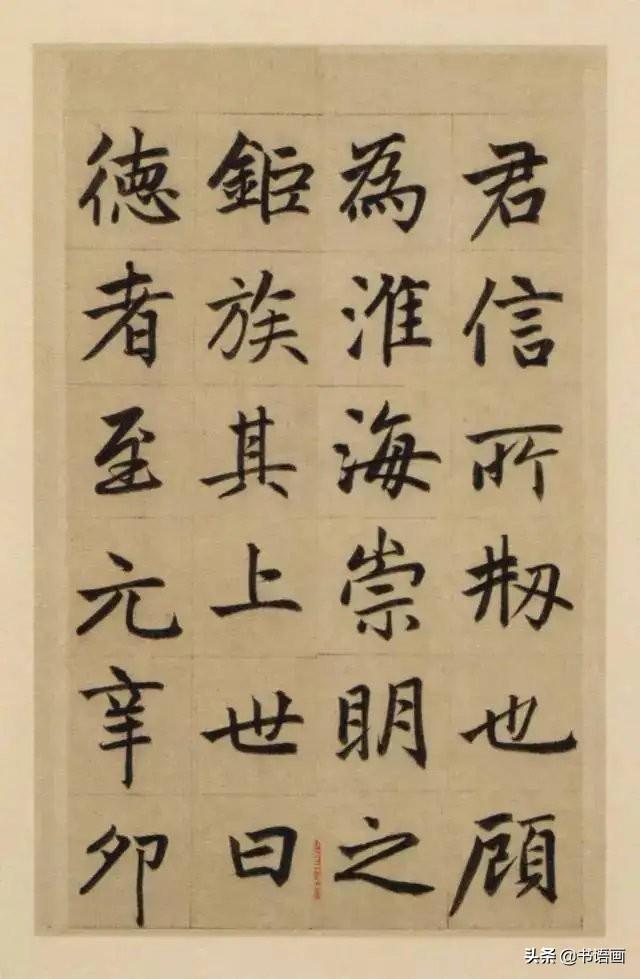 君信所刱也顾
為淮海崇明之
鉅族其上世曰
徳者至元辛卯
头条 @书语画